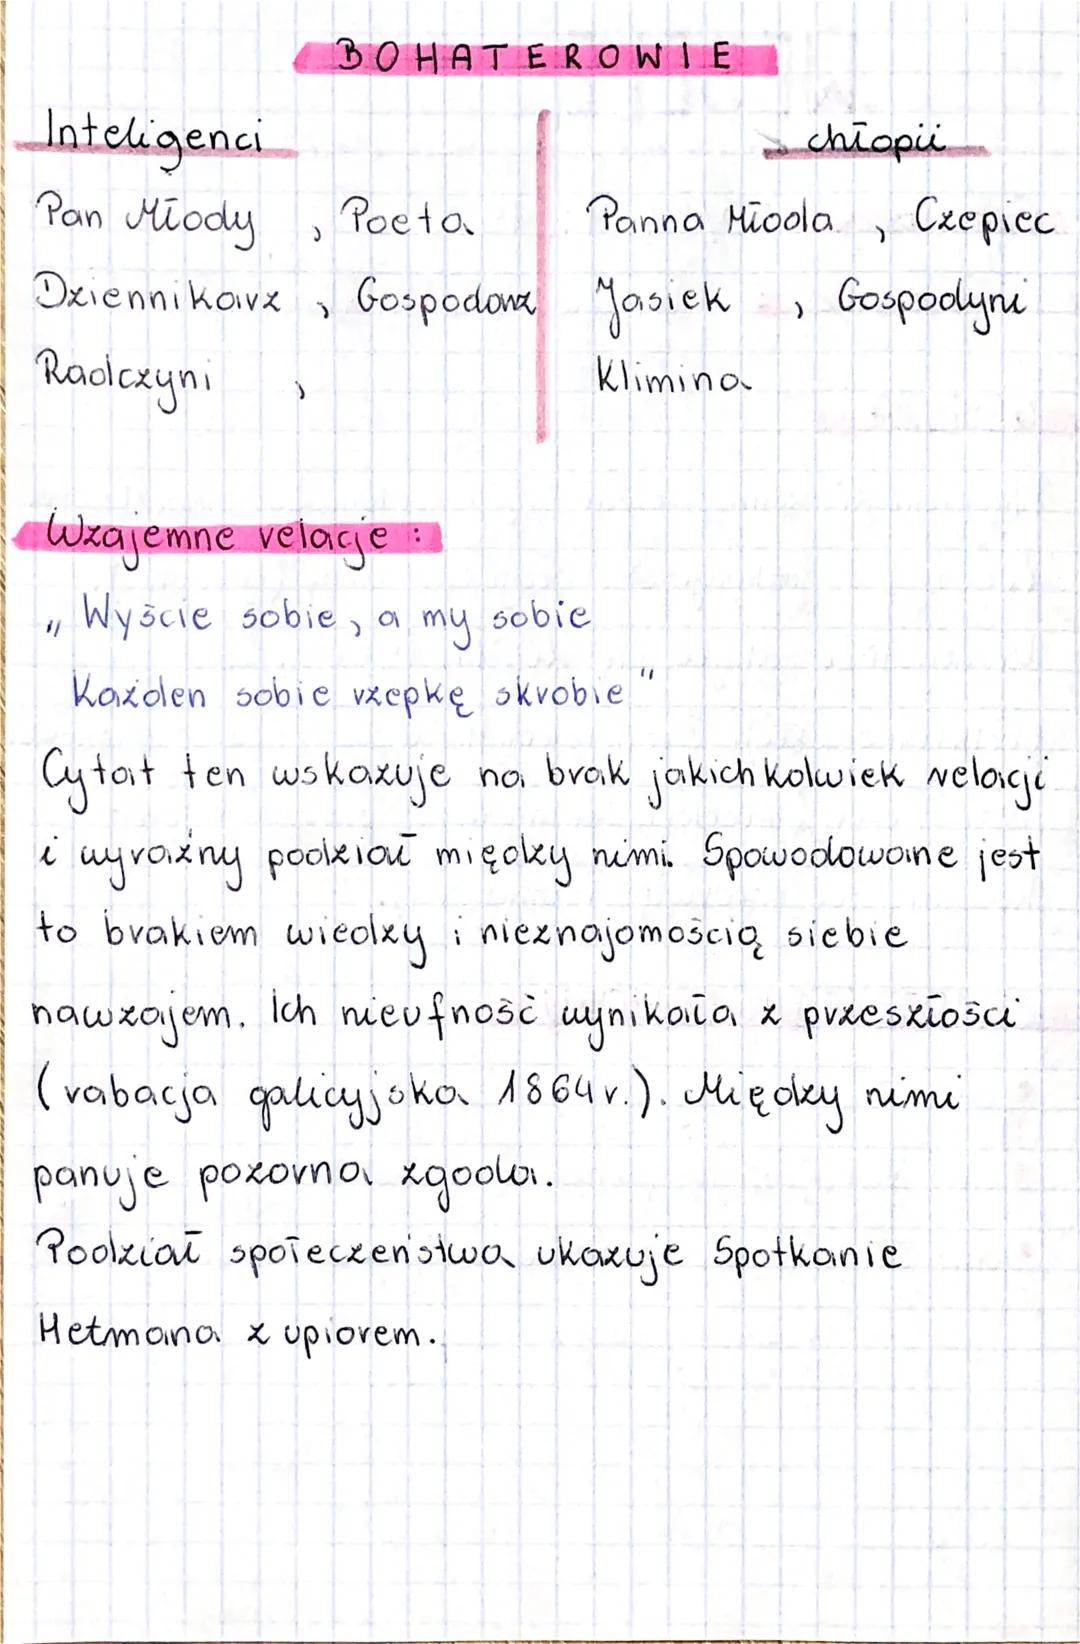 BOHATEROWIE
Inteligenci
chłopii
Pan Młody , Poeta
Panna Młoda , Czepiec
Dziennikarz , Gospodarz
Jasiek , Gospodyni
Radczyni ,
Klimina
Wzajemne relacje :
„ Wyście sobie, a my sobie
Każden sobie rzepkę skrobie "
Cytat ten wskazuje na brak jakichkolwiek relacji
i wyraźny podział między nimi. Spowodowane jest
to brakiem wiedzy i nieznajomością siebie
nawzajem. Ich nieufność wynikała z przeszłości
(rabacja galicyjska 1864 r.). Między nimi
panuje pozorna zgoda.
Podział społeczeństwa ukazuje Spotkanie
Hetmana z upiorem.